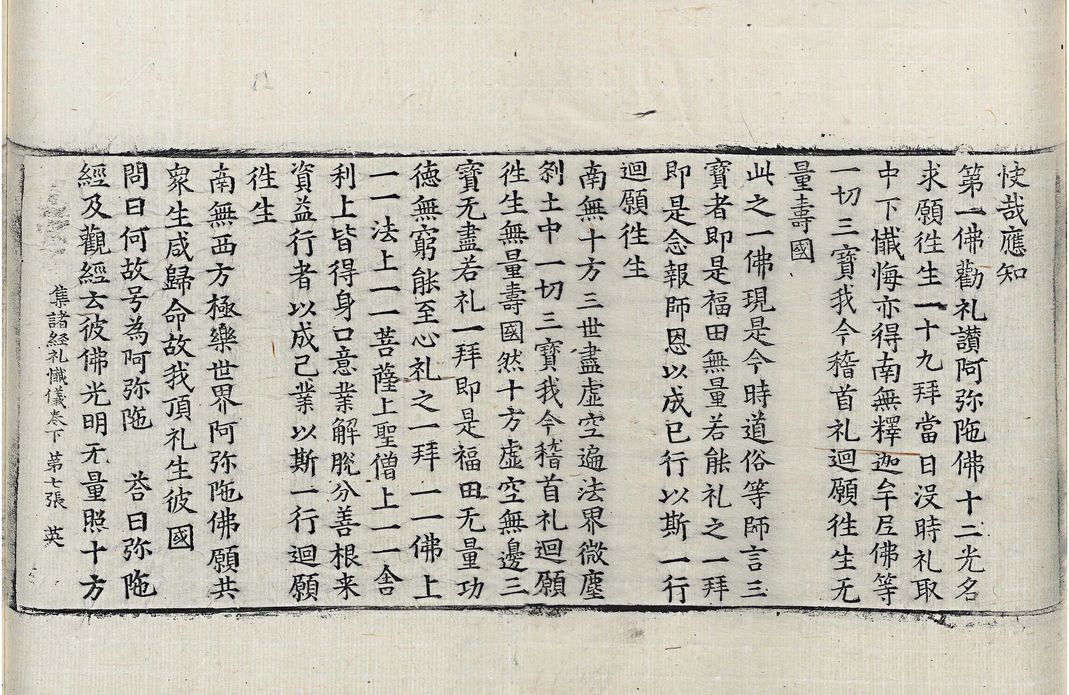 快哉應知
第一佛勸礼讚阿弥陁佛十二光名
求願徃生一十九拜當日没時礼取
中下懺悔亦得南無釋迦牟尼佛等
一切三寶我今稽首礼迴願徃生无
量壽國
此之一佛現是今時道俗等師言三
寶者即是福田無量若能礼之一拜
即是念報師恩以成已行以斯一行
迴願徃生
南無十方三世盡虛空遍法界微塵
刹土中一切三寶我今稽首礼迴願
徃生無量壽國然十方虛空無邊三
寶无盡若礼一拜即是福田无量功
德無窮能至心礼之一拜一一佛上
一一法上一一菩薩上聖僧上一一舍
利上皆得身口意業解脫分善根来
資益行者以成己業以斯一行迴願
徃生
南無西方極樂世界阿弥陁佛願共
衆生咸歸命故我頂礼生彼國
問曰何故号為阿弥陁 荅曰弥陁
經及觀經云彼佛光明无量照十方
集諸經礼懺儀卷下 第七張 英